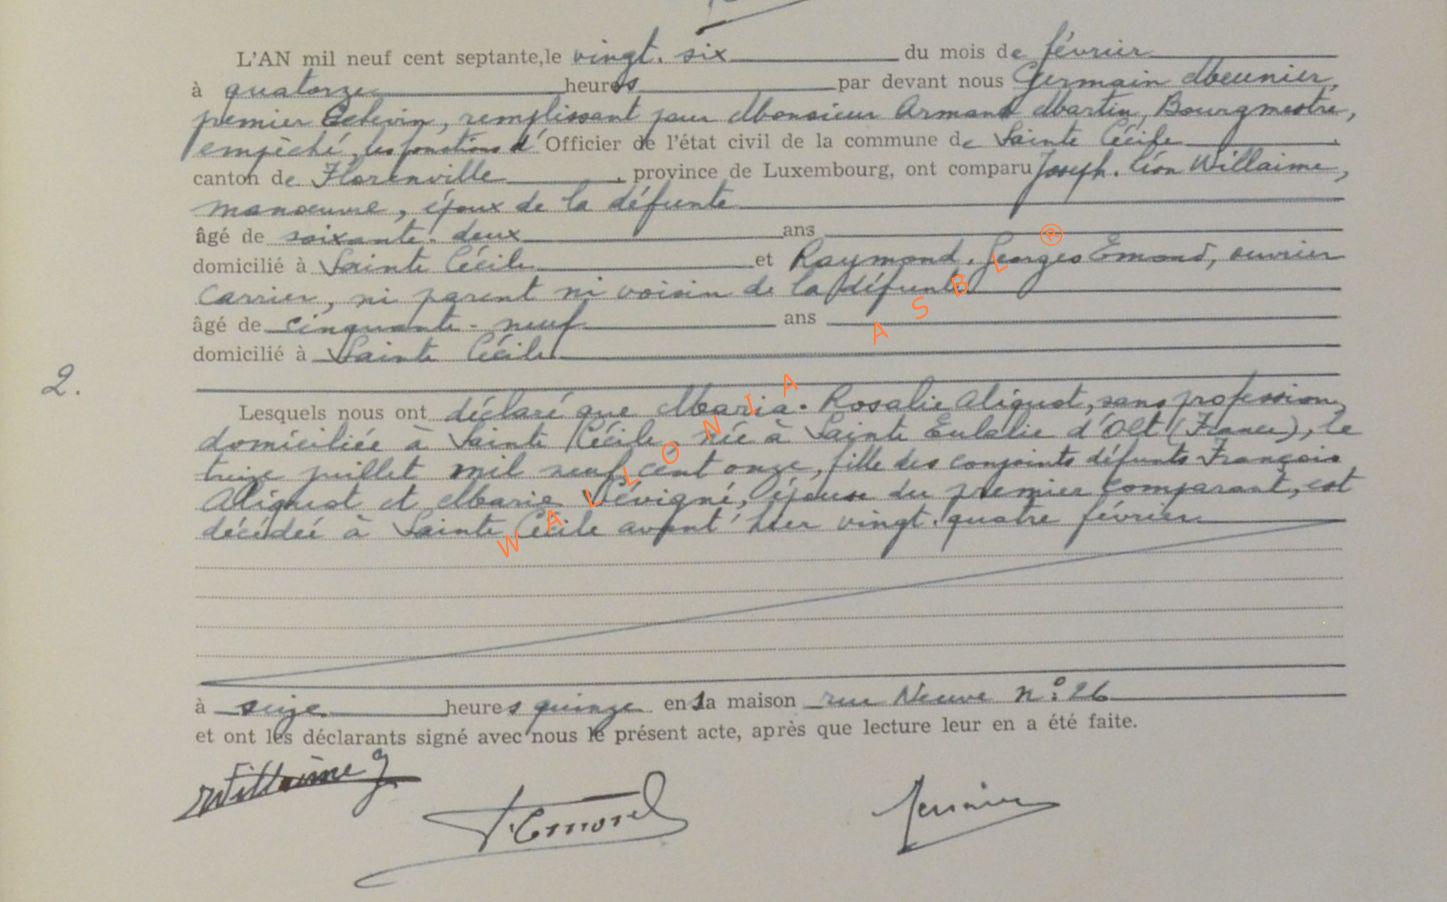 L'AN mil neuf cent septante, le vingt-six du mois de février
à quatorze heures par devant nous Germain Meunier,
premier Echevin, remplissant pour Monsieur Armand Martin, Bourgmestre,
empêché, les fonctions d'Officier de l'état civil de la commune de Sainte Cécile
canton de Florenville, province de Luxembourg, ont comparu Joseph-Léon Willaime,
manoeuvre, époux de la défunte
âgé de soixante-deux ans
domicilié à Sainte Cécile et Raymond-Georges Emond, ouvrier
carrier, ni parent ni voisin de la défunte
âgé de cinquante-neuf ans
domicilié à Sainte Cécile
2.
Lesquels nous ont déclaré que Maria-Rosalie Aliguot, sans profession,
domiciliée à Sainte Cécile, née à Sainte Eulalie d'Olt (France), le
treize juillet mil neuf cent onze, fille des conjoints défunts François
Aliguot et Marie Dévigné, épouse du premier comparant, est
décédée à Sainte Cécile avant-hier vingt-quatre février
à seize heures quinze en la maison rue Neuve n° 26
et ont les déclarants signé avec nous le présent acte, après que lecture leur en a été faite.
Willaime J
WALLONIA ASBL ®